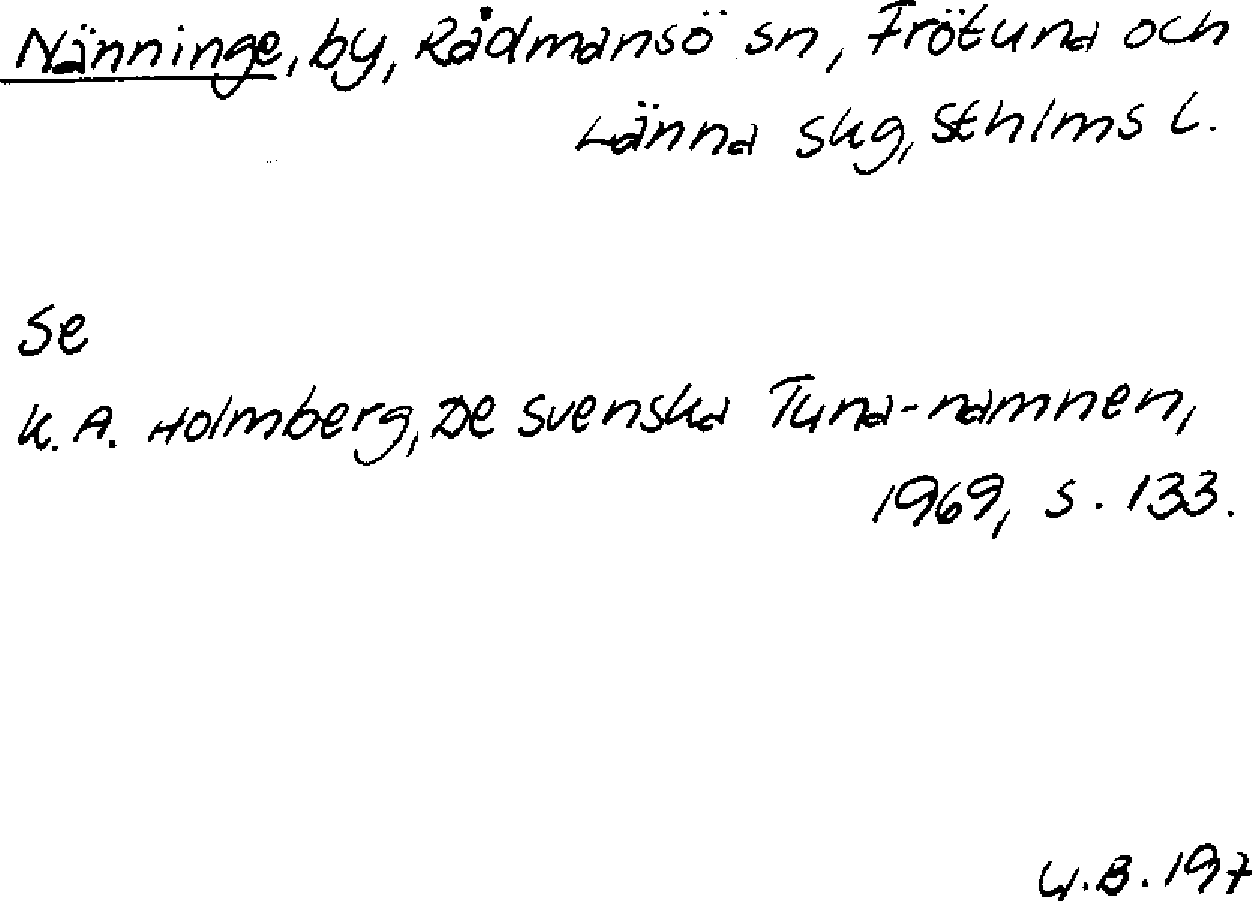 Nänninge, by, Rådmansö sn, Frötuna och
Länna skg, Sthlms l.
Se
K.A. Holmberg, De svenska Tuna-namnen,
1969, s. 133.
U.B. 197